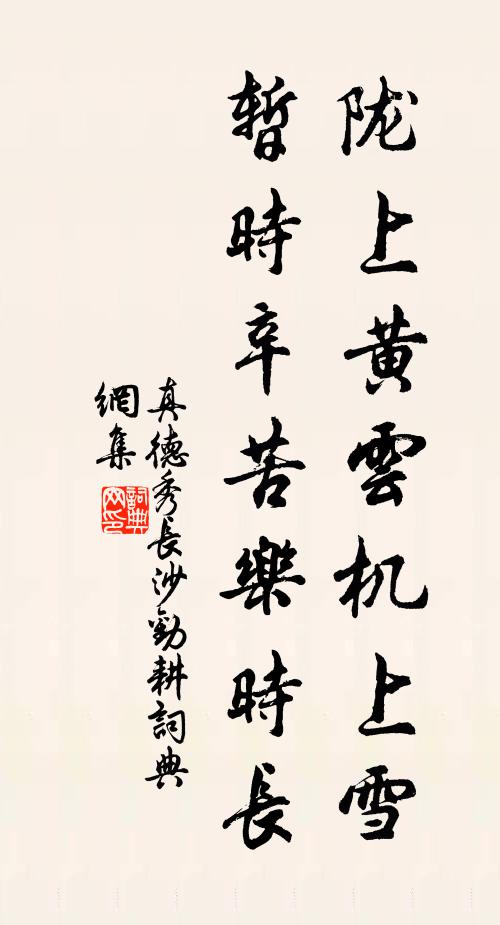 陇上黄雲机上雪
暫時辛苦樂時長
真德秀長沙勸耕詞典
網集
詞典网印